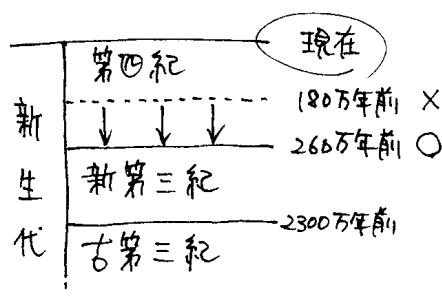 現在
第四紀
180万年前 ×
260万年前 ○
新生代
新第三紀
2300万年前
古第三紀